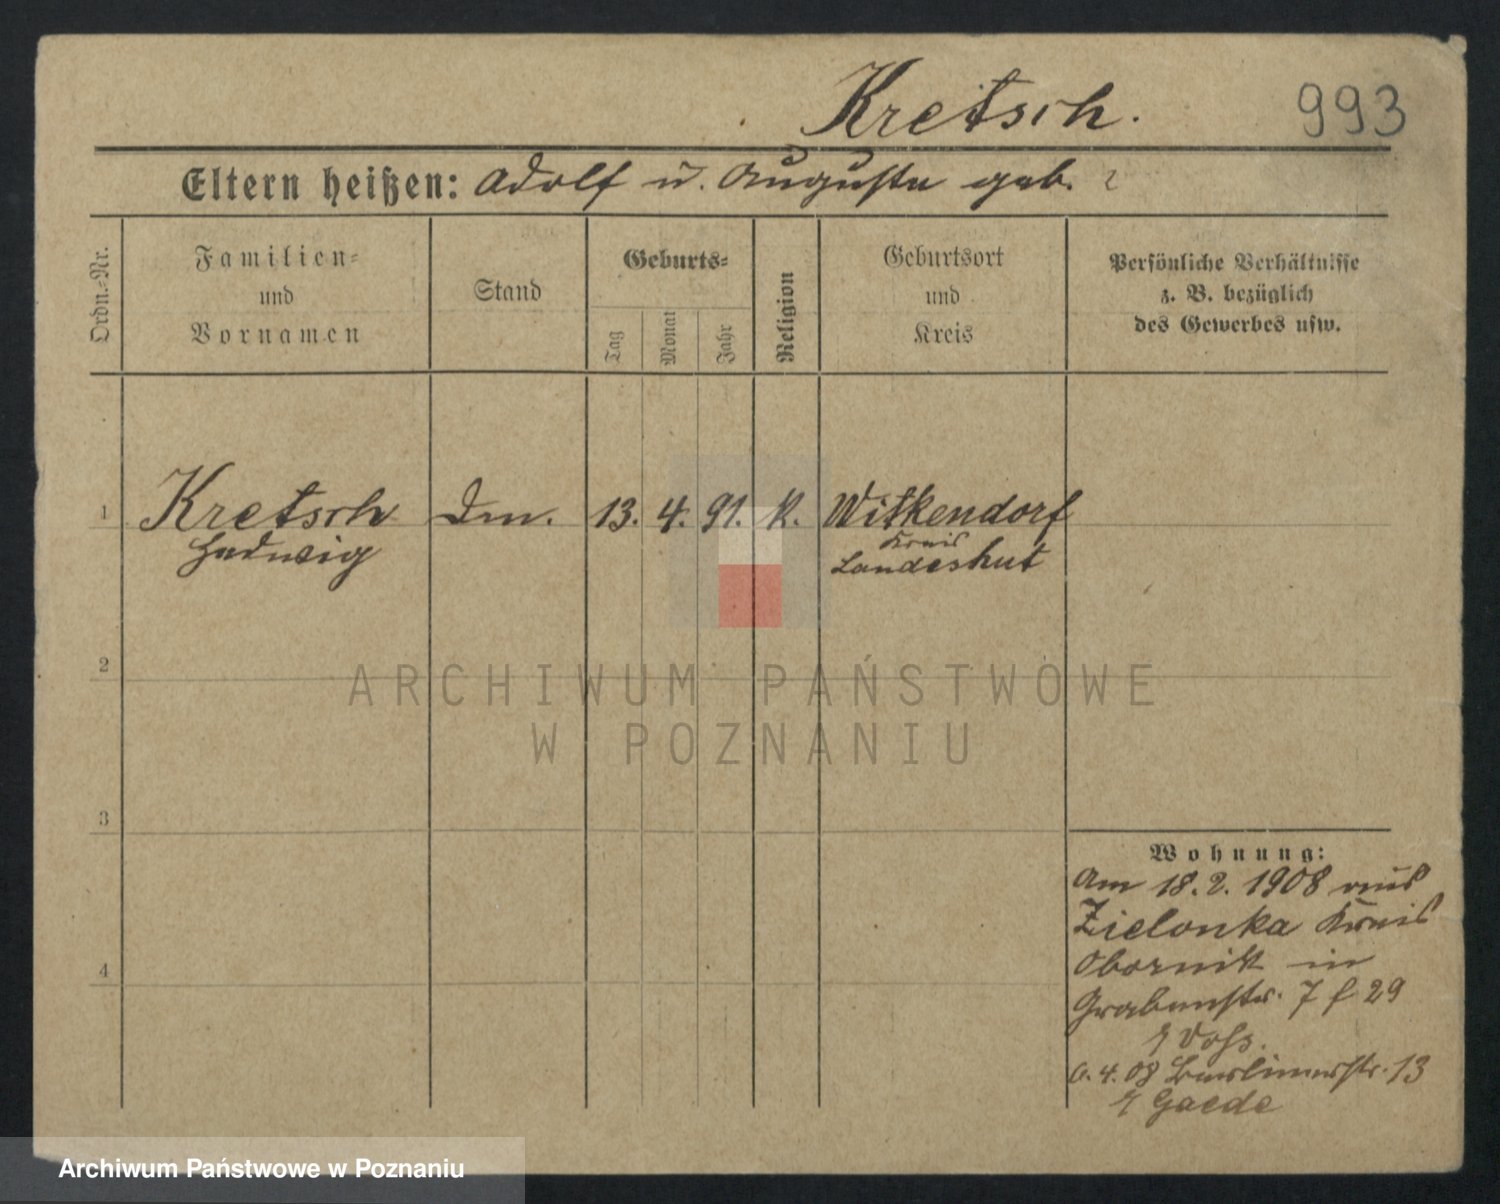 Kretsch.
993
Eltern heißen: Adolf u. Auguste geb. ?
Ordn.-Nr.
Familien-
und
Vornamen
Stand
Geburts-
Tag
Monat
Jahr
Religion
Geburtsort
und
Kreis
Persönliche Verhältnisse
z. B. bezüglich
des Gewerbes usw.
1
Kretsch
Hedwig
13. 4. 91. K.
Witkendorf
Kreis
Landeshut
2
ARCHIWUM PAŃSTWOWE
W POZNANIU
3
4
Wohnung:
Am 18.2.1908 aus
Zielonka Kreis
Obornik in
Grabenstr. 7 f 29
Voss.
4. 08 Berlinerstr. 13
Gaede
Archiwum Państwowe w Poznaniu